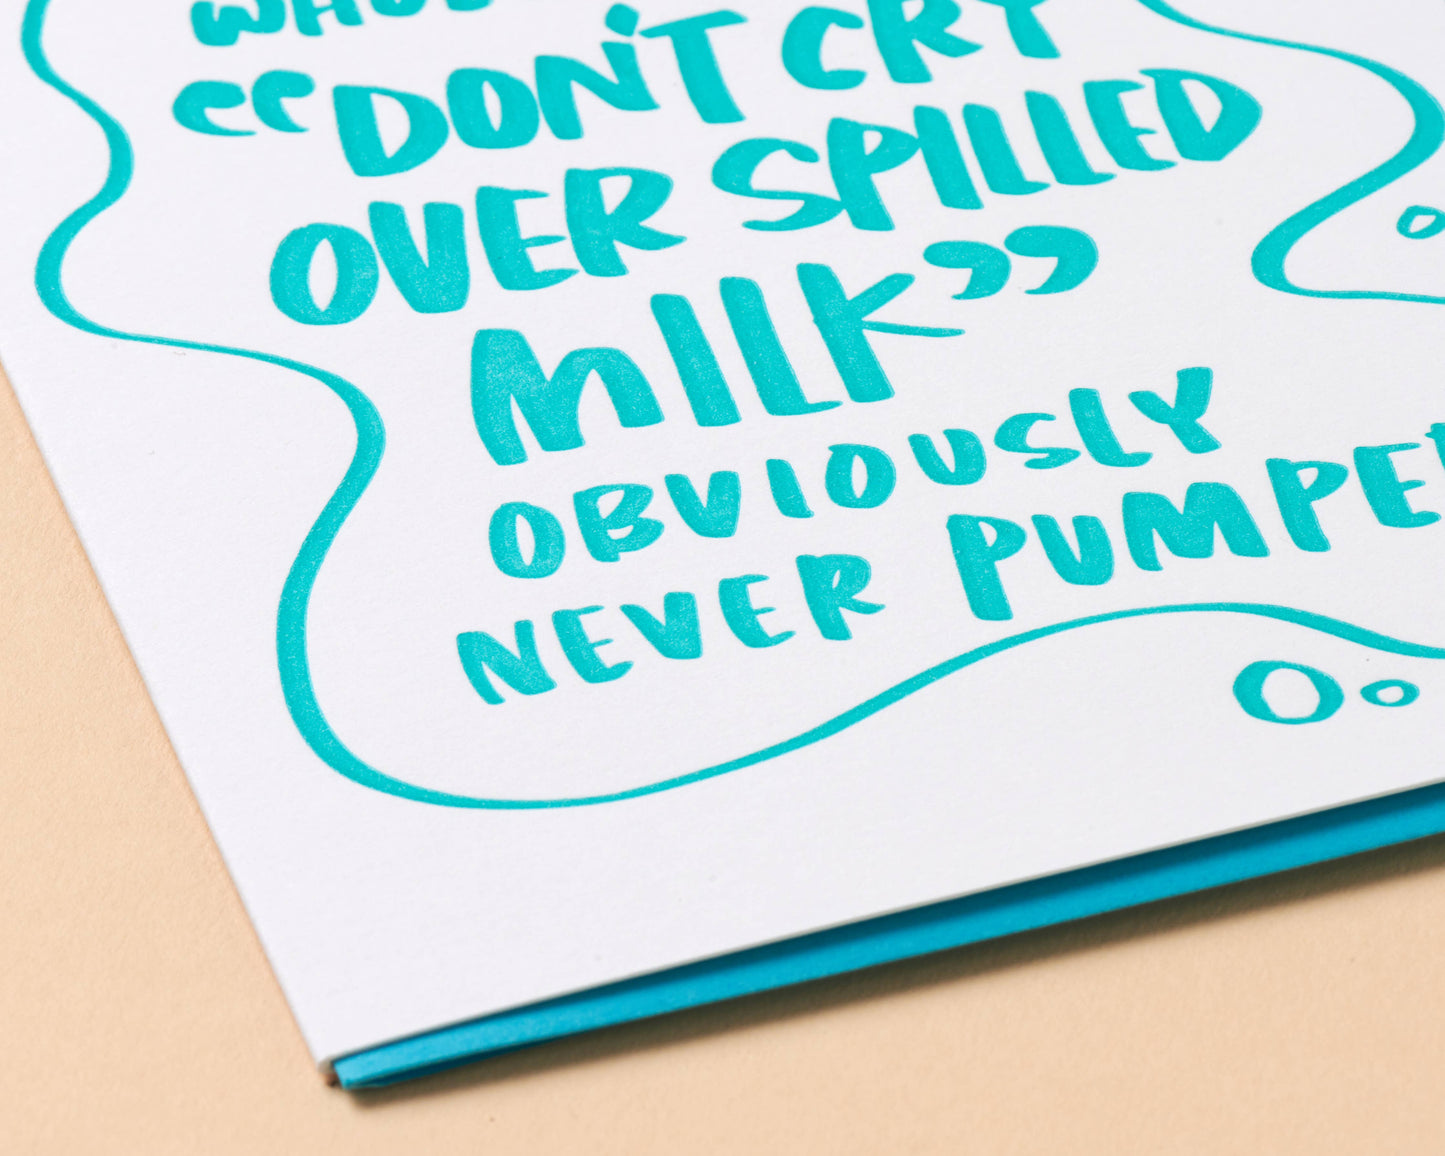 “DON'T CRY
OVER SPILLED
MILK”
OBVIOUSLY
NEVER PUMPED